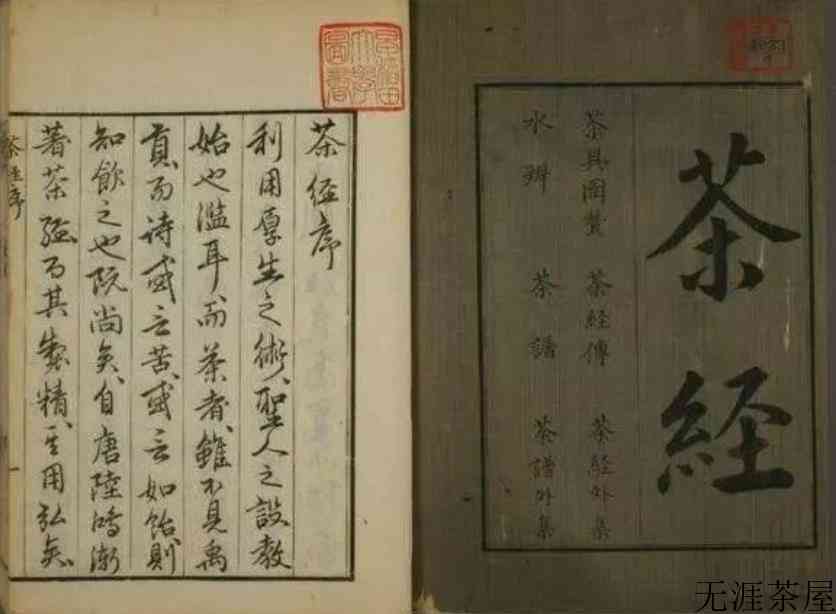 茶経
茶具圖贊 茶経傳 茶経外集
水辨 茶譜 茶譜外集
早稲田大學圖書
茶経序
利用厚生之術聖人之設教
始也濫耳而茶者雖不見禹
貢而詩或云苦或云如飴則
知飲之也既尚矣自唐陸鴻漸
著茶経而其製精其用弘矣
茶経序
无涯茶屋